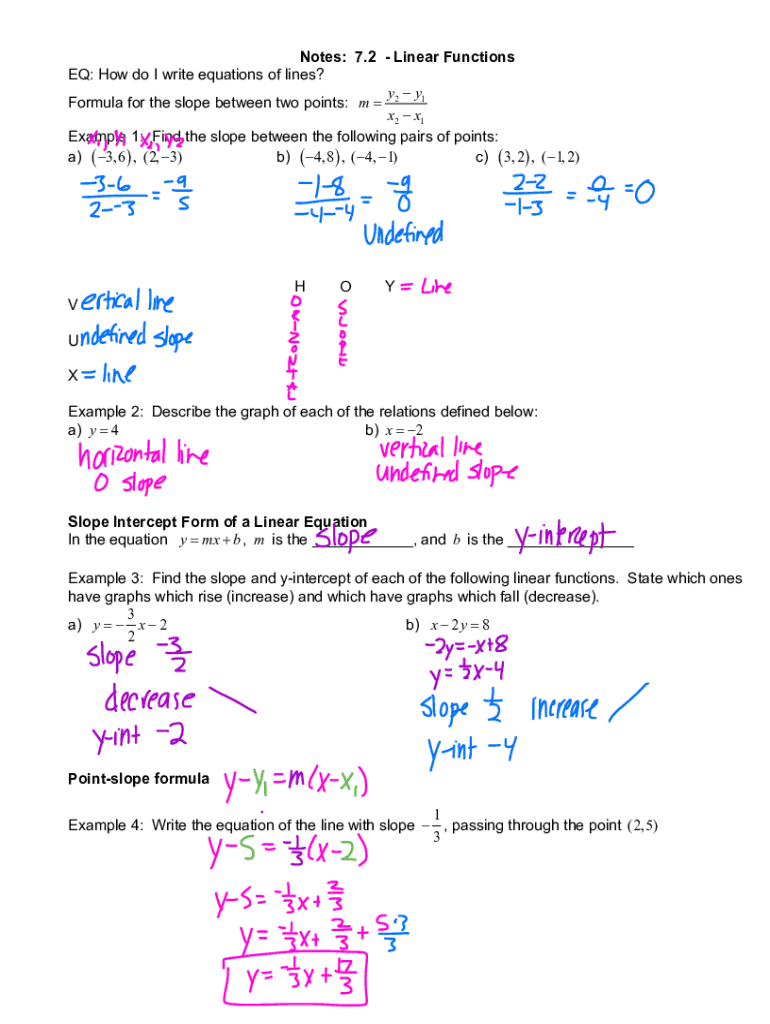 Notes: 7.2 - Linear Functions
EQ: How do I write equations of lines?
Formula for the slope between two points: m = (y₂ − y₁)/(x₂ − x₁)
Example 1: Find the slope between the following pairs of points:
x₁, y₁ x₁, y₂
a) (−3,6), (2,−3) b) (−4,8), (−4,−1) c) (3,2), (−1,2)
(-3-6)/(2--3) = -9/5 (-1-8)/(-4--4) = -9/0 (2-2)/(-1-3) = 0/-4 = 0
Undefined
H O Y = Line
HORIZONTAL
SLOPE
Vertical line
Undefined slope
X = line
Example 2: Describe the graph of each of the relations defined below:
a) y = 4 b) x = −2
horizontal line vertical line
0 slope undefined slope
Slope Intercept Form of a Linear Equation
In the equation y = mx + b, m is the slope, and b is the y-intercept
Example 3: Find the slope and y-intercept of each of the following linear functions. State which ones
have graphs which rise (increase) and which have graphs which fall (decrease).
a) y = −3/2 x − 2 b) x − 2y = 8
slope -3/2 -2y=-x+8
y=1/2x-4
decrease slope 1/2 increase
y-int -2 y-int -4
Point-slope formula y-y₁=m(x-x₁)
Example 4: Write the equation of the line with slope −1/3, passing through the point (2,5)
y-5=-1/3(x-2)
y-5=-1/3x+2/3
y=-1/3x+2/3+5·3/3
y=-1/3x+17/3